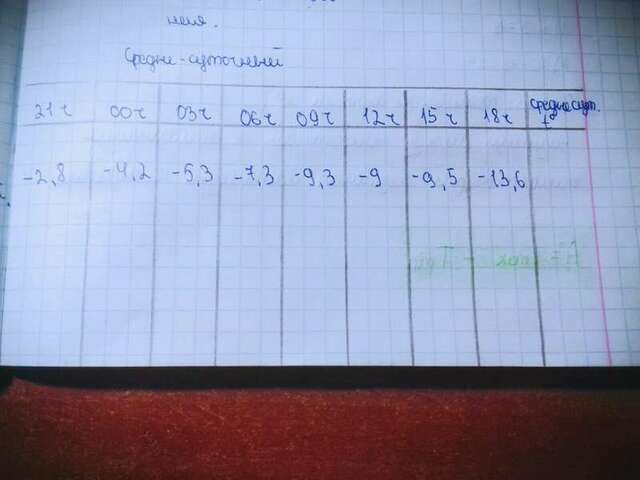 ния.
Средне-суточный
21ч 00ч 03ч 06ч 09ч 12ч 15ч 18ч среднесут. t
-2,8 -4,2 -5,3 -7,3 -9,3 -9 -9,5 -13,6